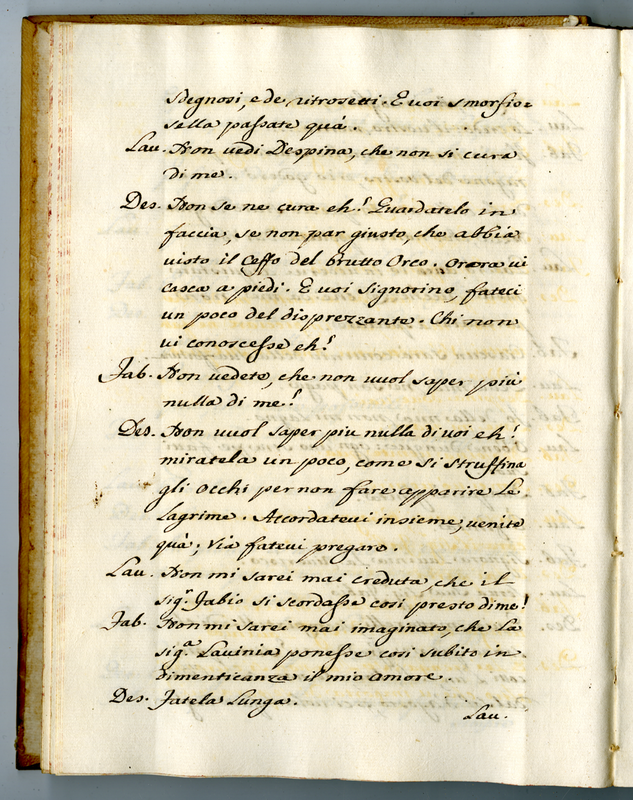 sdegnosi, e de ritrosetti. E voi smorfio=
sella passate quà
Lau. Non vedi Despina, che non si cura
di me.
Des. Non se ne cura eh! Guardatelo in
faccia, se non par giusto, che abbia
visto il Ceffo del brutto Orco. Orora vi
casca a piedi. E voi Signorino, fateci
un poco del disprezzante. Chi non
vi conoscesse eh!
Fab. Non vedete, che non vuol saper più
nulla di me!
Des. Non vuol saper piu nulla di voi eh!
miratela un poco, come si struffina
gli occhi per non fare apparire Le
Lagrime. Accordatevi insieme, venite
quà; Via fatevi pregare.
Lau. Non mi sarei mai creduta, che il
sigr. Fabio si scordasse cosi presto di me!
Fab. Non mi sarei mai imaginato, che La
siga. Lavinia ponesse cosi subito in
dimenticanza il mio amore
Des. Fatela Lunga.
Lau.